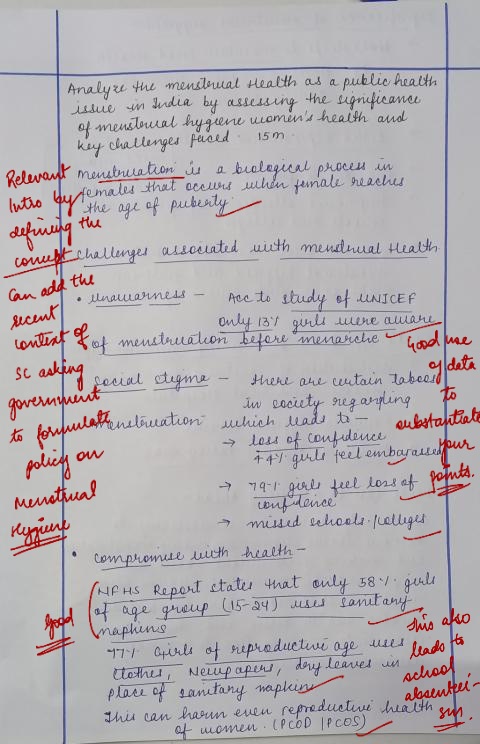 Analyze the menstrual Health as a public health
issue in India by assessing the significance
of menstrual hygiene women's health and
key challenges faced. 15m.
Relevant
Intro by
defining the
concept
menstruation is a biological process in
females that occurs when female reaches
the age of puberty.
challenges associated with menstrual Health
Can add the
recent
context of
SC asking
government
to formulate
policy on
Menstrual
Hygiene
• unawarness – Acc to study of UNICEF
only 13% girls were aware
of menstruation before menarche
Good use
of data
to
substantiate
your
points.
social stigma – there are certain taboos
in society regarding
menstruation which leads to –
→ loss of confidence
44% girls feel embarassed
→ 79% girls feel loss of
confidence
→ missed schools/colleges
• compromise with health –
Good
NFHS Report states that only 58% girls
of age group (15-24) uses sanitary
napkins
77% Girls of reproductive age uses
clothes, Newspapers, dry leaves in
place of sanitary napkin
This can harm even reproductive health
of women. (PCOD | PCOS)
This also
leads to
school
absenteei-
sm.